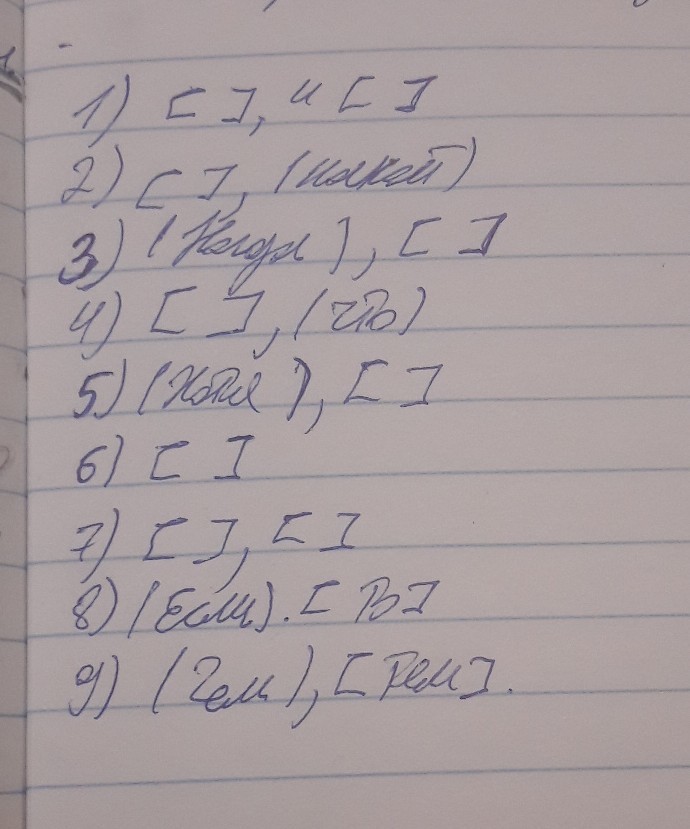 1) [ ], и [ ]
2) [ ], (какой)
3) (Когда), [ ]
4) [ ], (что)
5) (Хотя), [ ]
6) [ ]
7) [ ], [ ]
8) (Если). [ то ]
9) (Чем), [тем].